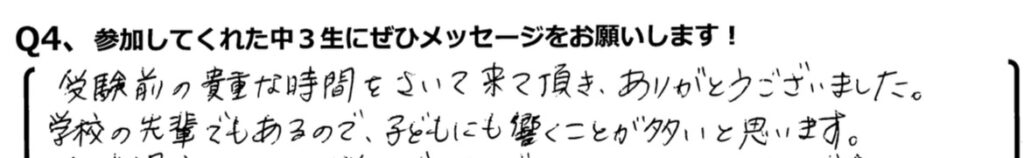 Q4、参加してくれた中3生にぜひメッセージをお願いします！
受験前の貴重な時間をさいて来て頂き、ありがとうございました。
学校の先輩でもあるので、子どもにも響くことが多いと思います。